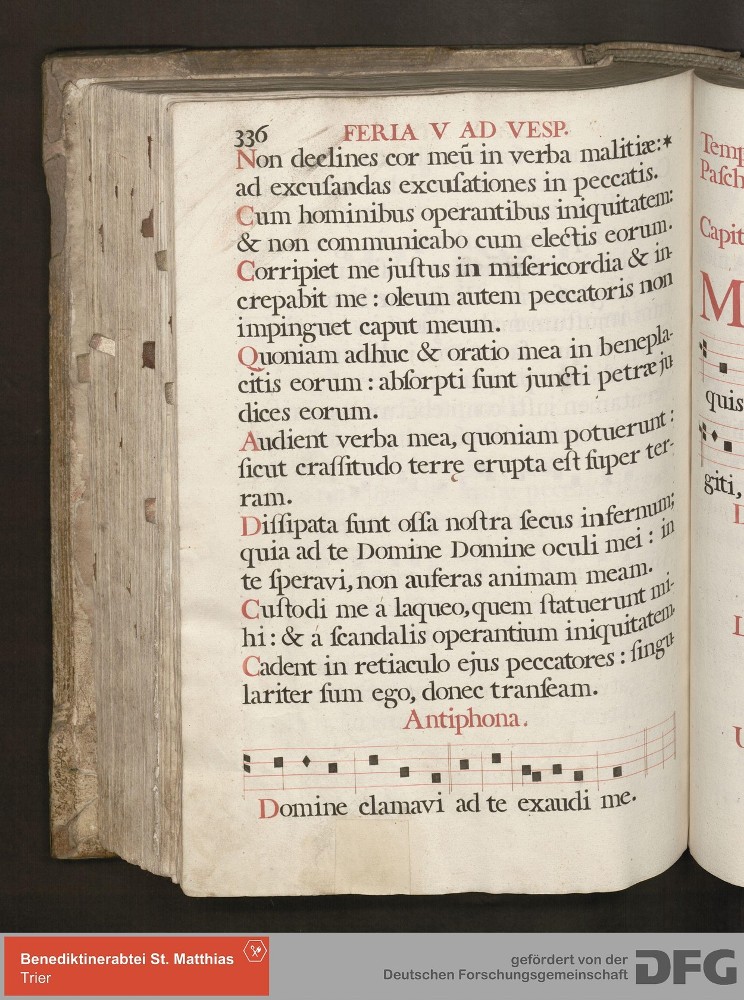 336 FERIA V AD VESP.
Non declines cor meū in verba malitiæ:*
ad excuſandas excuſationes in peccatis.
Cum hominibus operantibus iniquitatem:
& non communicabo cum electis eorum.
Corripiet me juſtus in miſericordia & in-
crepabit me : oleum autem peccatoris non
impinguet caput meum.
Quoniam adhuc & oratio mea in benepla-
citis eorum : abſorpti ſunt juncti petræ ju
dices eorum.
Audient verba mea, quoniam potuerunt :
ſicut craſſitudo terrę erupta eſt ſuper ter-
ram.
Diſſipata ſunt oſſa noſtra ſecus infernum;
quia ad te Domine Domine oculi mei : in
te ſperavi, non auferas animam meam.
Cuſtodi me á laqueo, quem ſtatuerunt mi-
hi : & á ſcandalis operantium iniquitatem.
Cadent in retiaculo ejus peccatores : ſingu-
lariter ſum ego, donec tranſeam.
Antiphona.
Domine clamavi ad te exaudi me.
Temp
Paſch
Capit
M
quis
giti,
Benediktinerabtei St. Matthias
Trier
gefördert von der
Deutschen Forschungsgemeinschaft
DFG